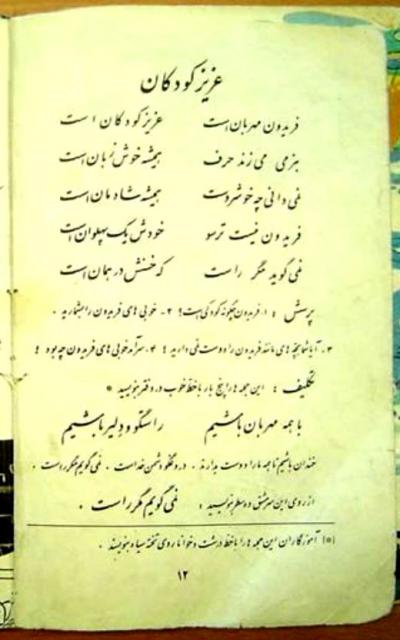 عزیز کودکان
فریدون مهربان است عزیز کودکان است
بنرمی می زند حرف همیشه خوش زبان است
نمی دانی چه خوشروست همیشه شادمان است
فریدون نیست ترسو خودش یک پهلوان است
نمی گوید مگر راست که حسنش در همان است
پرسش : ۱- فریدون چگونه کودکی است؟ ۲- خوبی های فریدون را بشمارید .
۳- آیا شما بچه های مانند فریدون را دوست نمی دارید؟ ۴- سرآمد خوبی های فریدون چه بود ؟
تکلیف : این جمله ها را پنج بار با خط خوب در دفتر بنویسید *
با همه مهربان باشیم راستگو و دلیر باشیم
خندان باشیم تا همه ما را دوست بدارند . دروغگو دشمن خداست . نمی گویم مگر راست .
از روی این سرمشق بنویسید : نمی گویم مگر راست .
(*) آموزگاران این جمله ها را با خط درشت و خوانا روی تخته سیاه بنویسند .
۱۲